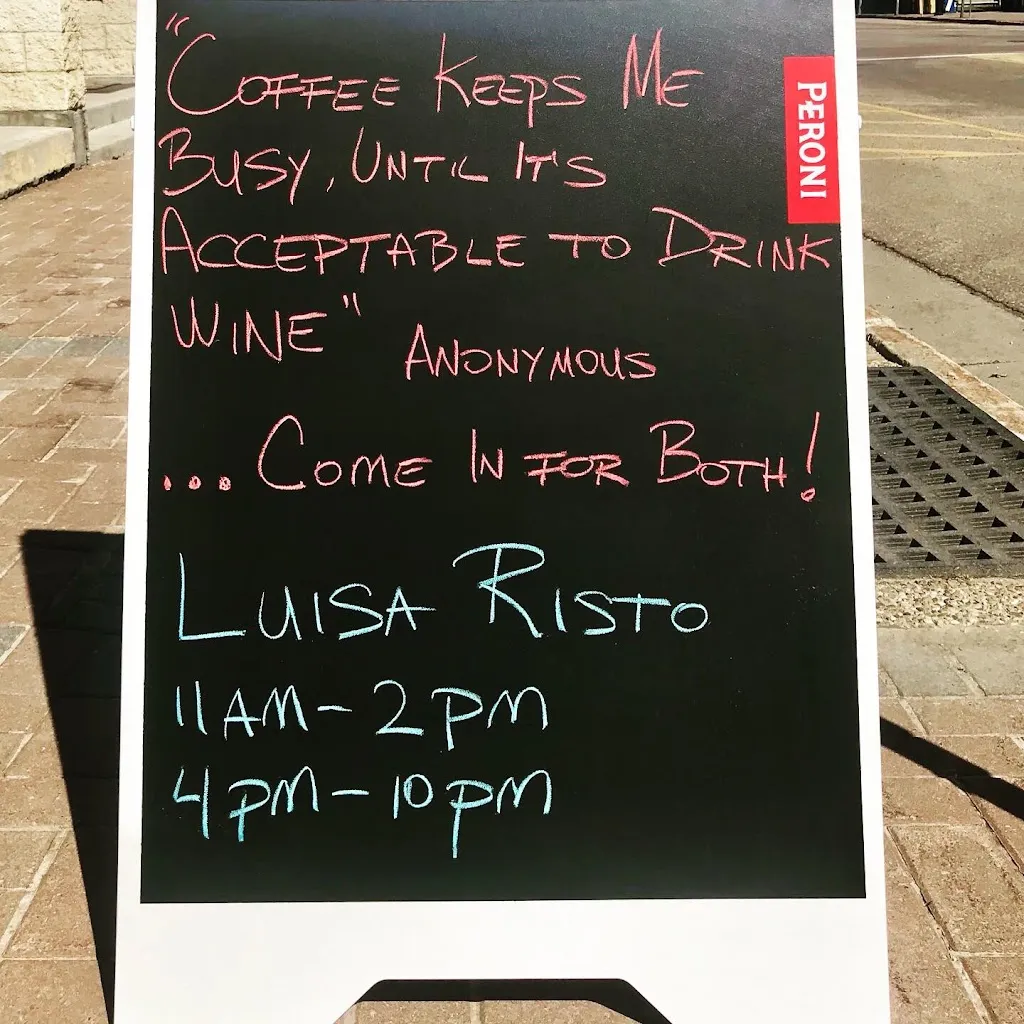 "Coffee Keeps Me
Busy, Until It's
Acceptable to Drink
Wine"
Anonymous
... Come In for Both!
Luisa Risto
11AM - 2pm
4pm - 10pm
PERONI